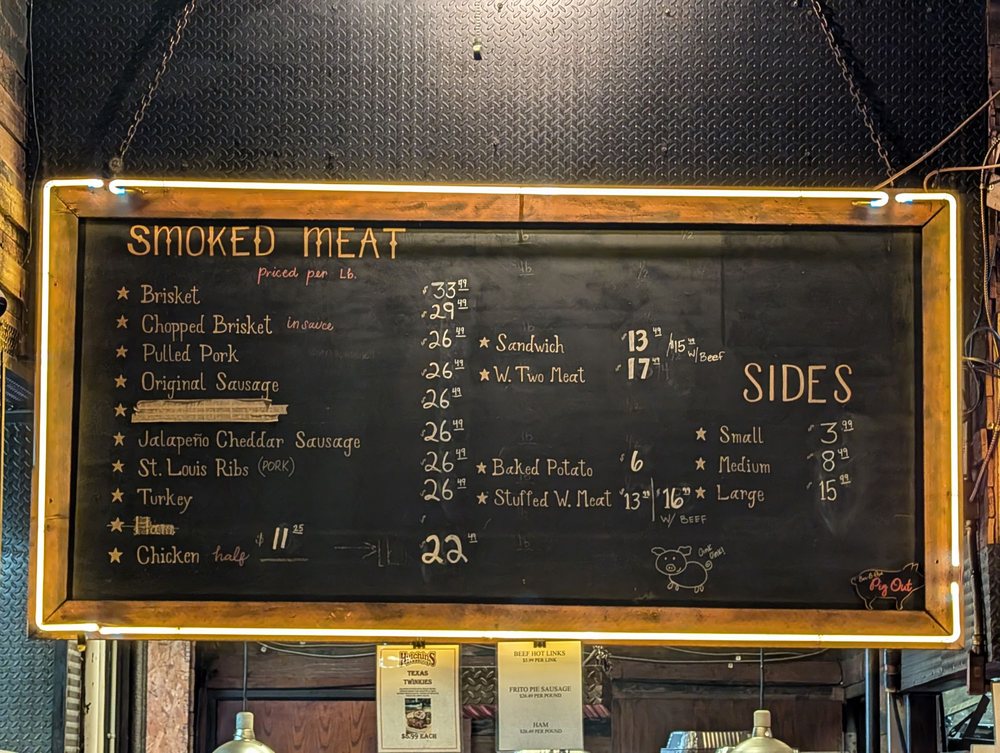 SMOKED MEAT
priced per Lb.
★ Brisket $33 99
★ Chopped Brisket in sauce 29 49
★ Pulled Pork $26 49
★ Original Sausage $26 49
$26 49
★ Jalapeño Cheddar Sausage $26 49
★ St. Louis Ribs (PORK) $26 49
★ Turkey $26 49
★ Ham
★ Chicken half $11 25 $22 49
★ Sandwich $13 49 / $15 w/ Beef
★ W. Two Meat $17 49
★ Baked Potato $6
★ Stuffed W. Meat $13 99 | $16 99
W/ BEEF
SIDES
★ Small $3 99
★ Medium $8 49
★ Large $15 99
OINK OINK!
Pig Out
Hutchins
TEXAS
TWINKIES
$8.99 EACH
BEEF HOT LINKS
$5.99 PER LINK
FRITO PIE SAUSAGE
$26.49 PER POUND
HAM
$26.49 PER POUND